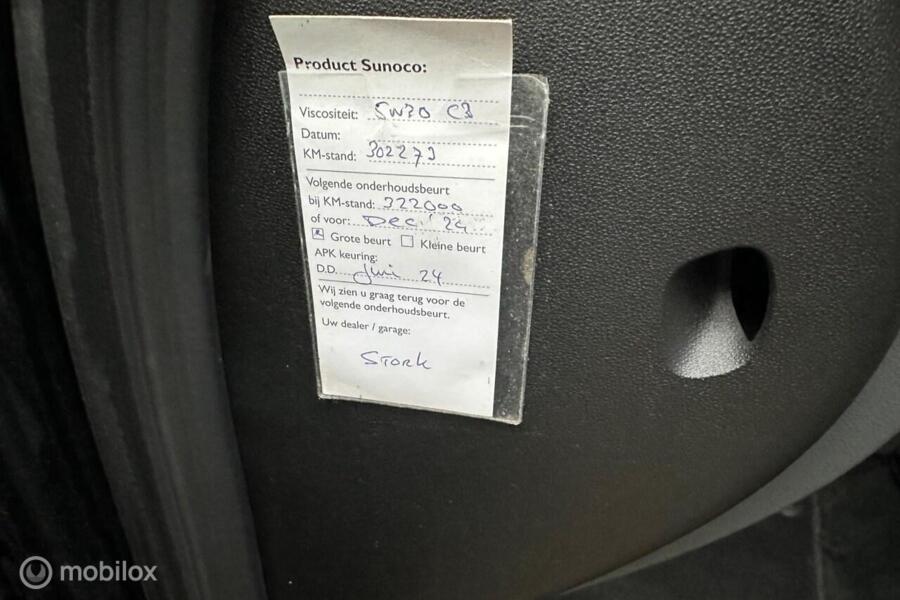 Product Sunoco:
Viscositeit: 5W30 C3
Datum:
KM-stand: 302273
Volgende onderhoudsbeurt
bij KM-stand: 322000
of voor: Dec '24
Grote beurt Kleine beurt
APK keuring:
D.D. Juni 24
Wij zien u graag terug voor de
volgende onderhoudsbeurt.
Uw dealer / garage:
STORK
mobilox